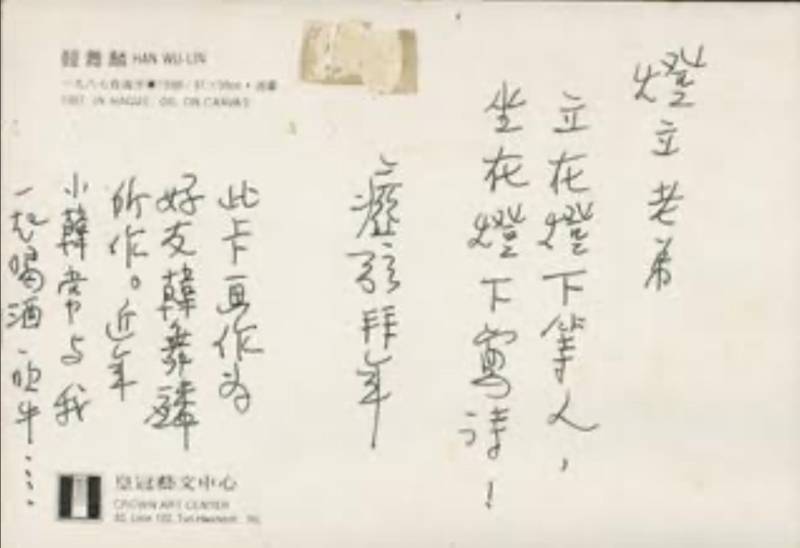 燈立老弟
立在燈下等人，
坐在燈下寫詩！
瘂弦拜年
此卡画作为
好友韓舞麟
所作。近年
小韓常与我
一起喝酒、吹牛……
韓舞麟 HAN WU-LIN
一九八七在海牙■1988/ 油畫
1987 IN HAGUE, OIL ON CANVAS
皇冠藝文中心
CROWN ART CENTER
50, Lane 120,